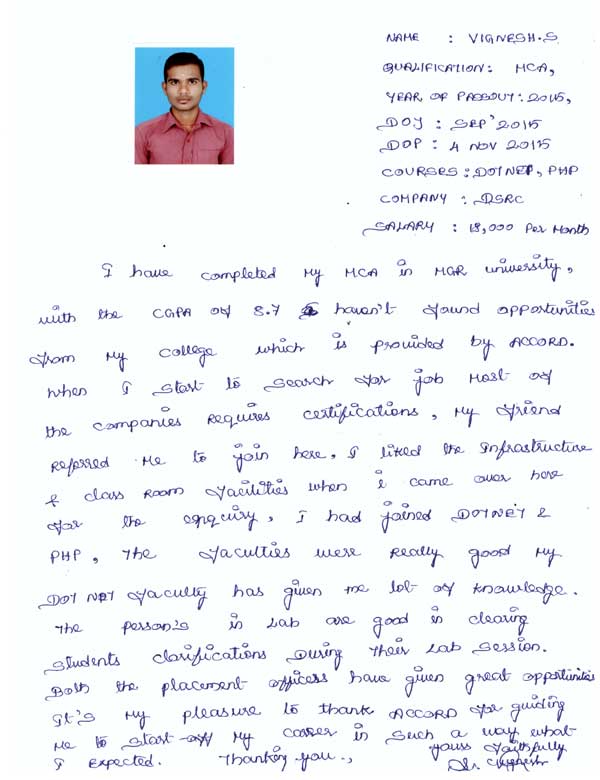 NAME : VIGNESH.S
QUALIFICATION: MCA,
YEAR OF PASSOUT: 2015,
DOJ : SEP'2015
DOP : 4 NOV 2015
COURSES : DOTNET, PHP
COMPANY : DSRC
SALARY : 18,000 Per Month
I have completed my MCA in MGR university,
with the CGPA of 8.7 I haven't found opportunities
from my college which is provided by ACCORD.
when I start to search for job most of
the companies requires certifications, my friend
referred me to join here, I liked the Infrastructure
& class room facilities when i came over here
for the enquiry, I had joined DOTNET &
PHP, The faculties were really good my
DOT NET faculty has given me lot of knowledge.
The person's in Lab are good in clearing
students clarifications During their Lab Session.
Both the placement officers have given great opportunities
It's my pleasure to thank ACCORD for guiding
me to start off my career in such a way what
I expected. Thanking you., yours faithfully